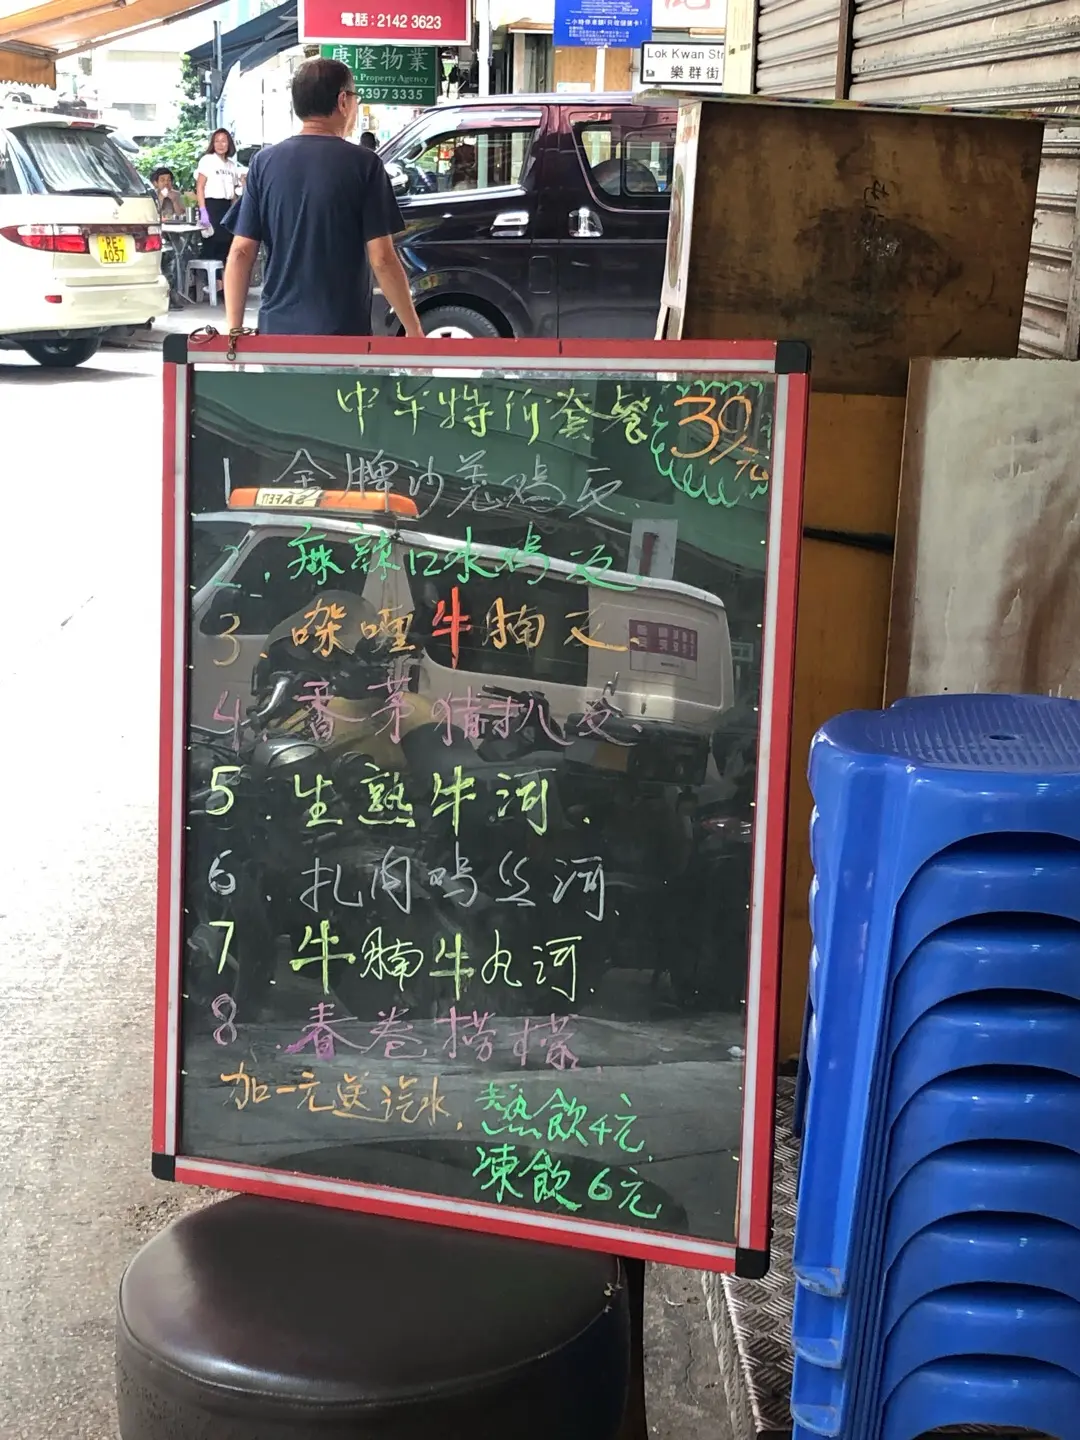 電話:2142 3623
康隆物業
n Property Agency
2397 3335
Lok Kwan Str
樂群街
RE
4057
中午特價套餐 39元
1. 金牌沙羌鸡反.
2. 麻辣口水鸡反.
3. 咖喱牛腩反.
4. 香茅猪扒反.
5. 生熟牛河.
6. 扎肉鸡丝河.
7. 牛腩牛丸河.
8. 春卷捞檬.
加一元送汽水.
熱飲4元
凍飲6元